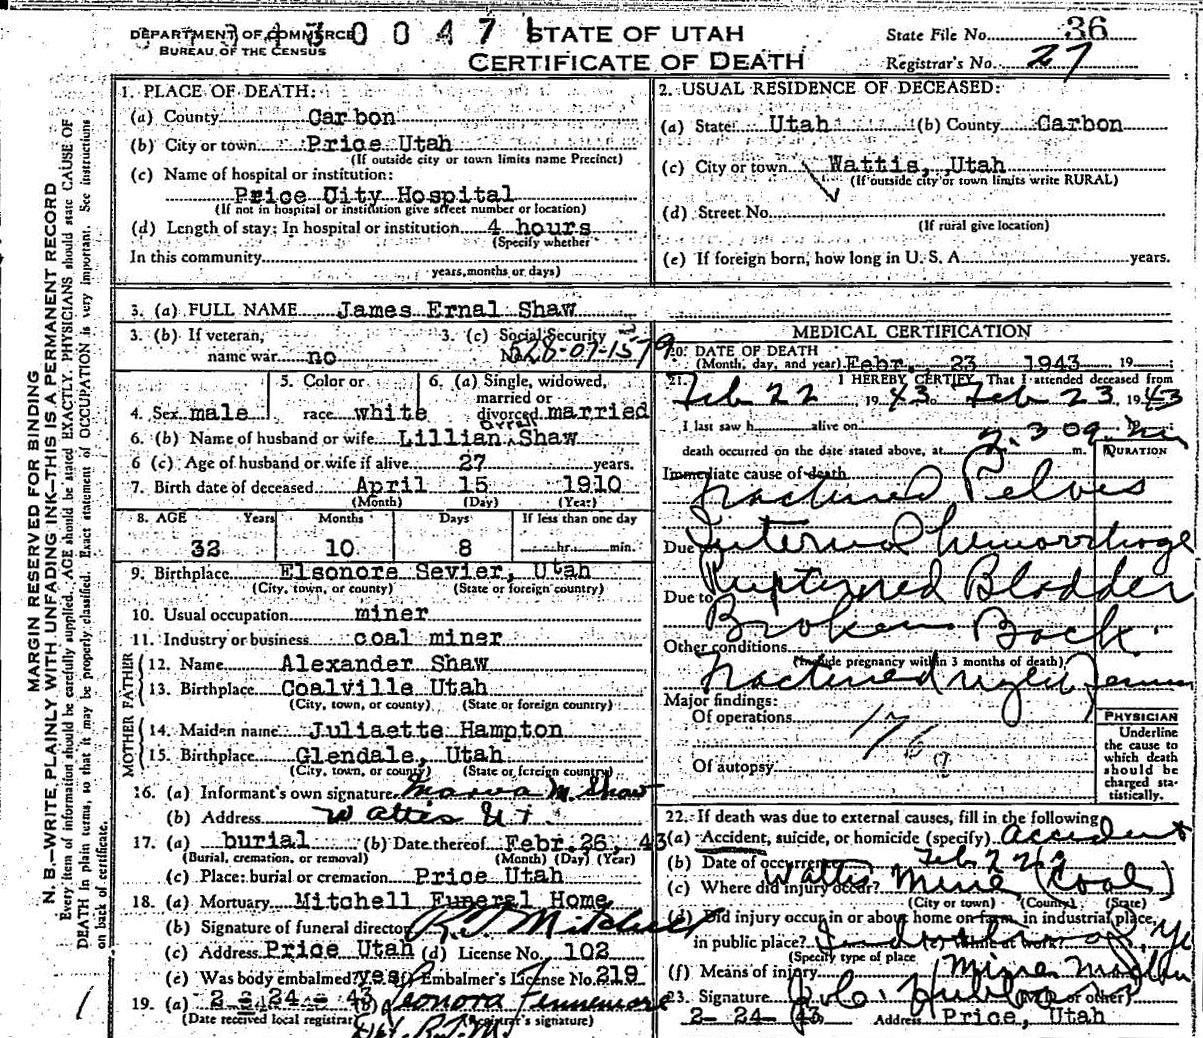 MARGIN RESERVED FOR BINDING
N. B.—WRITE PLAINLY WITH UNFADING INK—THIS IS A PERMANENT RECORD
Every item of information should be carefully supplied. AGE should be stated EXACTLY. PHYSICIANS should state CAUSE OF
DEATH in plain terms, so that it may be properly classified. Exact statement of OCCUPATION is very important. See instructions
on back of certificate.
DEPARTMENT OF COMMERCE
BUREAU OF THE CENSUS
0 0 4 7 1
STATE OF UTAH
CERTIFICATE OF DEATH
State File No. 36
Registrar's No. 27
1. PLACE OF DEATH:
(a) County Carbon
(b) City or town Price Utah
(If outside city or town limits name Precinct)
(c) Name of hospital or institution:
Price City Hospital
(If not in hospital or institution give street number or location)
(d) Length of stay: In hospital or institution 4 hours
(Specify whether
In this community
years, months or days)
2. USUAL RESIDENCE OF DECEASED:
(a) State Utah (b) County Carbon
(c) City or town Wattis, Utah
(If outside city or town limits write RURAL)
(d) Street No.
(If rural give location)
(e) If foreign born, how long in U. S. A. years.
3. (a) FULL NAME James Ernal Shaw
3. (b) If veteran, name war no
3. (c) Social Security No. 528-07-1579
4. Sex male
5. Color or race white
6. (a) Single, widowed, married or divorced married
6. (b) Name of husband or wife Lillian Orrell Shaw
6 (c) Age of husband or wife if alive 27 years.
7. Birth date of deceased April 15 1910
(Month) (Day) (Year)
8. AGE Years Months Days If less than one day
32 10 8 hr. min.
9. Birthplace Elsonore Sevier, Utah
(City, town, or county) (State or foreign country)
10. Usual occupation miner
11. Industry or business coal miner
FATHER
12. Name Alexander Shaw
13. Birthplace Coalville Utah
(City, town, or county) (State or foreign country)
MOTHER
14. Maiden name Juliaette Hampton
15. Birthplace Glendale, Utah
(City, town, or county) (State or foreign country)
16. (a) Informant's own signature M. Shaw
(b) Address Wattis Ut
17. (a) burial (b) Date thereof Febr. 26, 43
(Burial, cremation, or removal) (Month) (Day) (Year)
(c) Place: burial or cremation Price Utah
18. (a) Mortuary Mitchell Funeral Home
(b) Signature of funeral director R. J. Mitchell
(c) Address Price Utah (d) License No. 102
(e) Was body embalmed? yes (f) Embalmer's License No. 219
19. (a) 2-24-43 (b) Leonora Fennemore
(Date received local registrar) (Registrar's signature)
MEDICAL CERTIFICATION
20. DATE OF DEATH
(Month, day, and year) Febr. 23 1943 19
21. I HEREBY CERTIFY, That I attended deceased from
Feb 22 1943 to Feb 23 1943
I last saw h alive on
death occurred on the date stated above, at 2.30 a. m.
DURATION
Immediate cause of death
Fractured Pelves
Due to Internal hemorrhage
Due to Rupterned Bladder
Broken Back.
Other conditions
(Include pregnancy within 3 months of death)
Fractured right femur
Major findings:
Of operations
Of autopsy
PHYSICIAN
Underline
the cause to
which death
should be
charged sta-
tistically.
22. If death was due to external causes, fill in the following
(a) Accident, suicide, or homicide (specify) accident
(b) Date of occurrence Feb 22
(c) Where did injury occur? Wattis Mine (Coal)
(City or town) (County) (State)
(d) Did injury occur in or about home on farm, in industrial place,
in public place? Industrial (e) While at work? Yes
(Specify type of place
(f) Means of injury Mine
23. Signature (M.D. or other)
2- 24- 43 Address Price, Utah